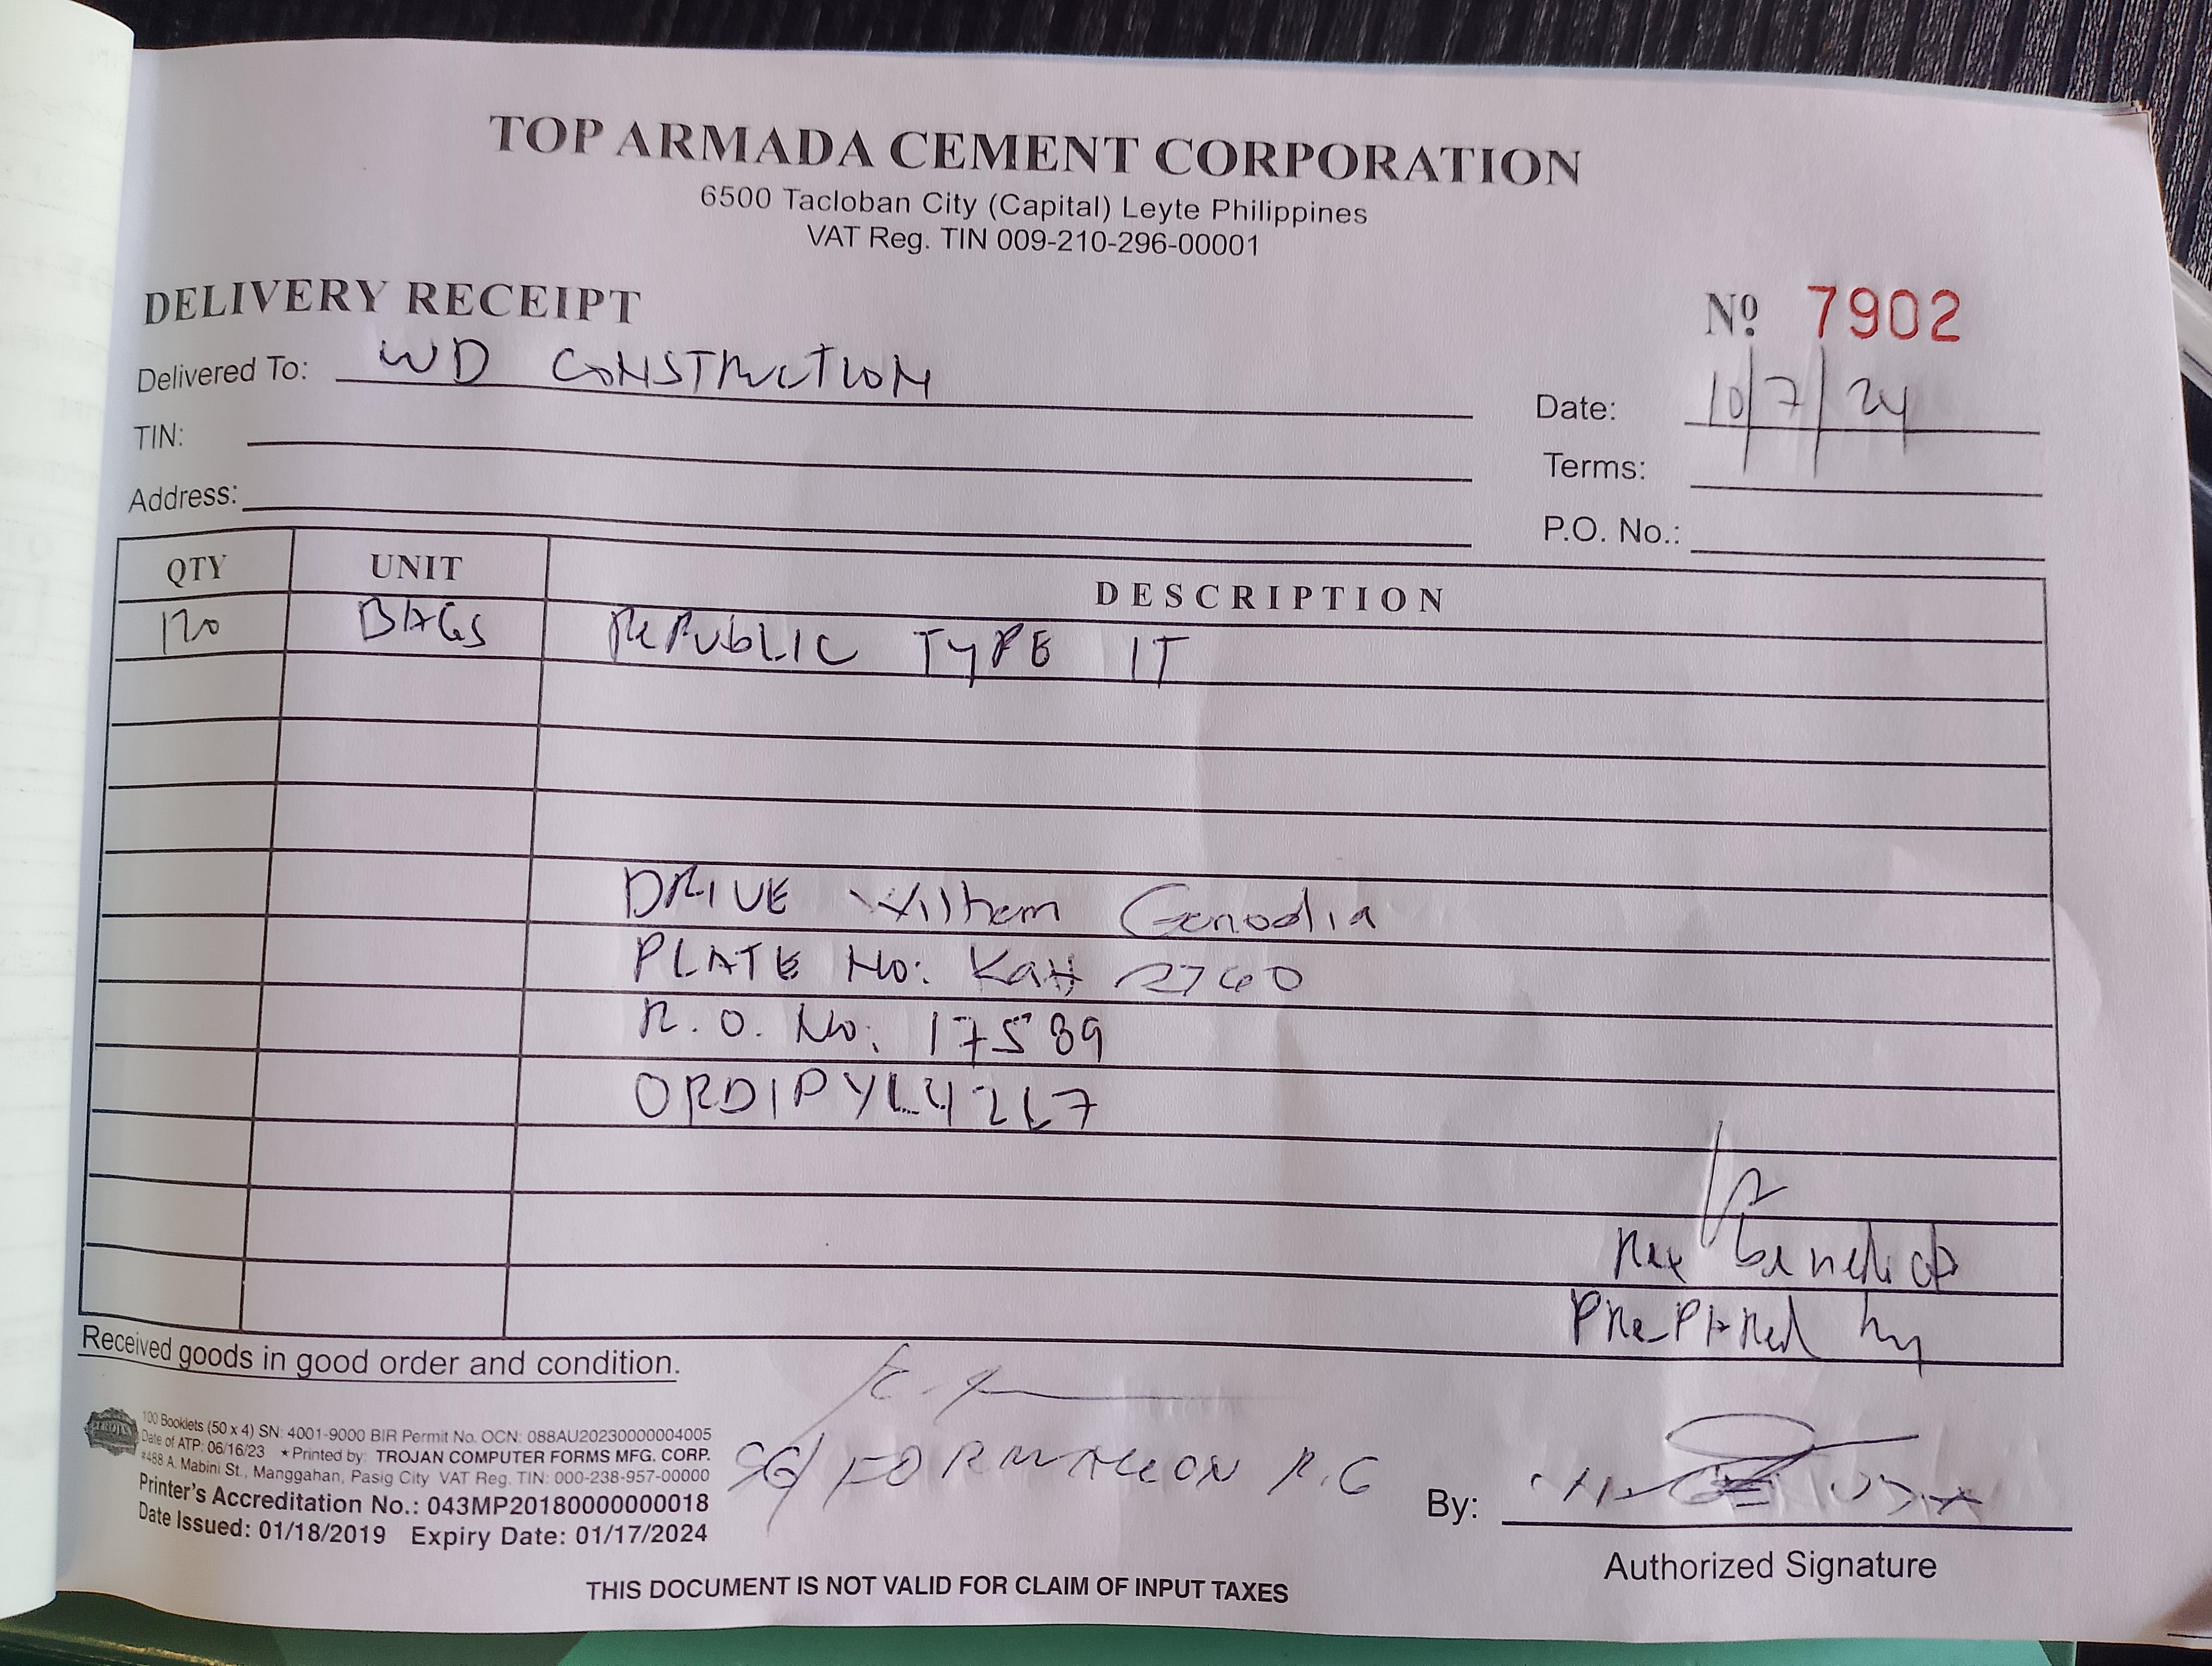 TOP ARMADA CEMENT CORPORATION
6500 Tacloban City (Capital) Leyte Philippines
VAT Reg. TIN 009-210-296-00001
DELIVERY RECEIPT
Nº 7902
Delivered To: WD CONSTRUCTION
Date: 10/7/24
TIN:
Terms:
Address:
P.O. No.:
QTY UNIT DESCRIPTION
120 BAGS REPUBLIC TYPE IT
DRIVE
PLATE No: KAH 2760
R.O. No: 17589
ORDIPYL42L7
Rex
PREPARED by
Received goods in good order and condition.
100 Booklets (50 x 4) SN: 4001-9000 BIR Permit No. OCN: 088AU20230000004005
Date of ATP: 06/16/23 ★Printed by: TROJAN COMPUTER FORMS MFG. CORP.
#488 A. Mabini St., Manggahan, Pasig City VAT Reg. TIN: 000-238-957-00000
Printer's Accreditation No.: 043MP20180000000018
Date Issued: 01/18/2019 Expiry Date: 01/17/2024
SG/
By:
Authorized Signature
THIS DOCUMENT IS NOT VALID FOR CLAIM OF INPUT TAXES